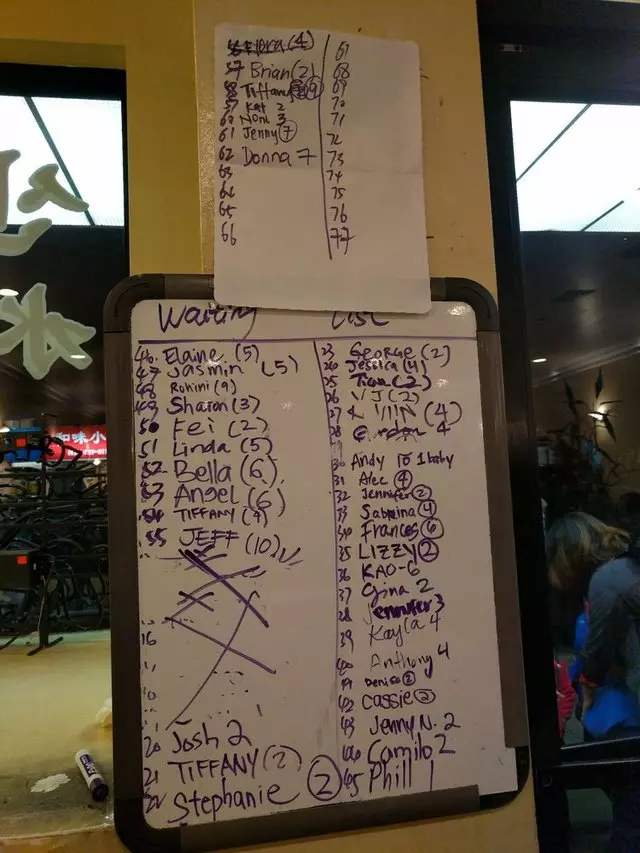 57 Brian (2)
58 Tiffany 9
59 Kat 2
60 Noni 3
61 Jenny 7
62 Donna 7
63
64
65
66
67
68
69
70
71
72
73
74
75
76
77
Waiting List
46. Elaine (5)
47 Jasmin (5)
48 Rohini (9)
49 Sharon (3)
50 Fei (2)
51 Linda (5)
52 Bella (6)
53 Angel (6)
54 TIFFANY
55 JEFF (10)
16
20 Josh 2
21 TIFFANY (2)
22 Stephanie 2
23 George (2)
24 Jessica (4)
25 Tran (2)
26 VJ (2)
27 (4)
28 4
30 Andy 10 1 baby
31 Alec 4
32 Jennifer 2
33 Sabrina 4
34 Frances 6
35 LIZZY 2
36 KAO-6
37 Gina 2
38 Jennifer 3
39 Kayla 4
40 Anthony 4
Denise 2
42 Cassie 2
43 Jenny N. 2
Camilo 2
45 Phill 1
水
和味小